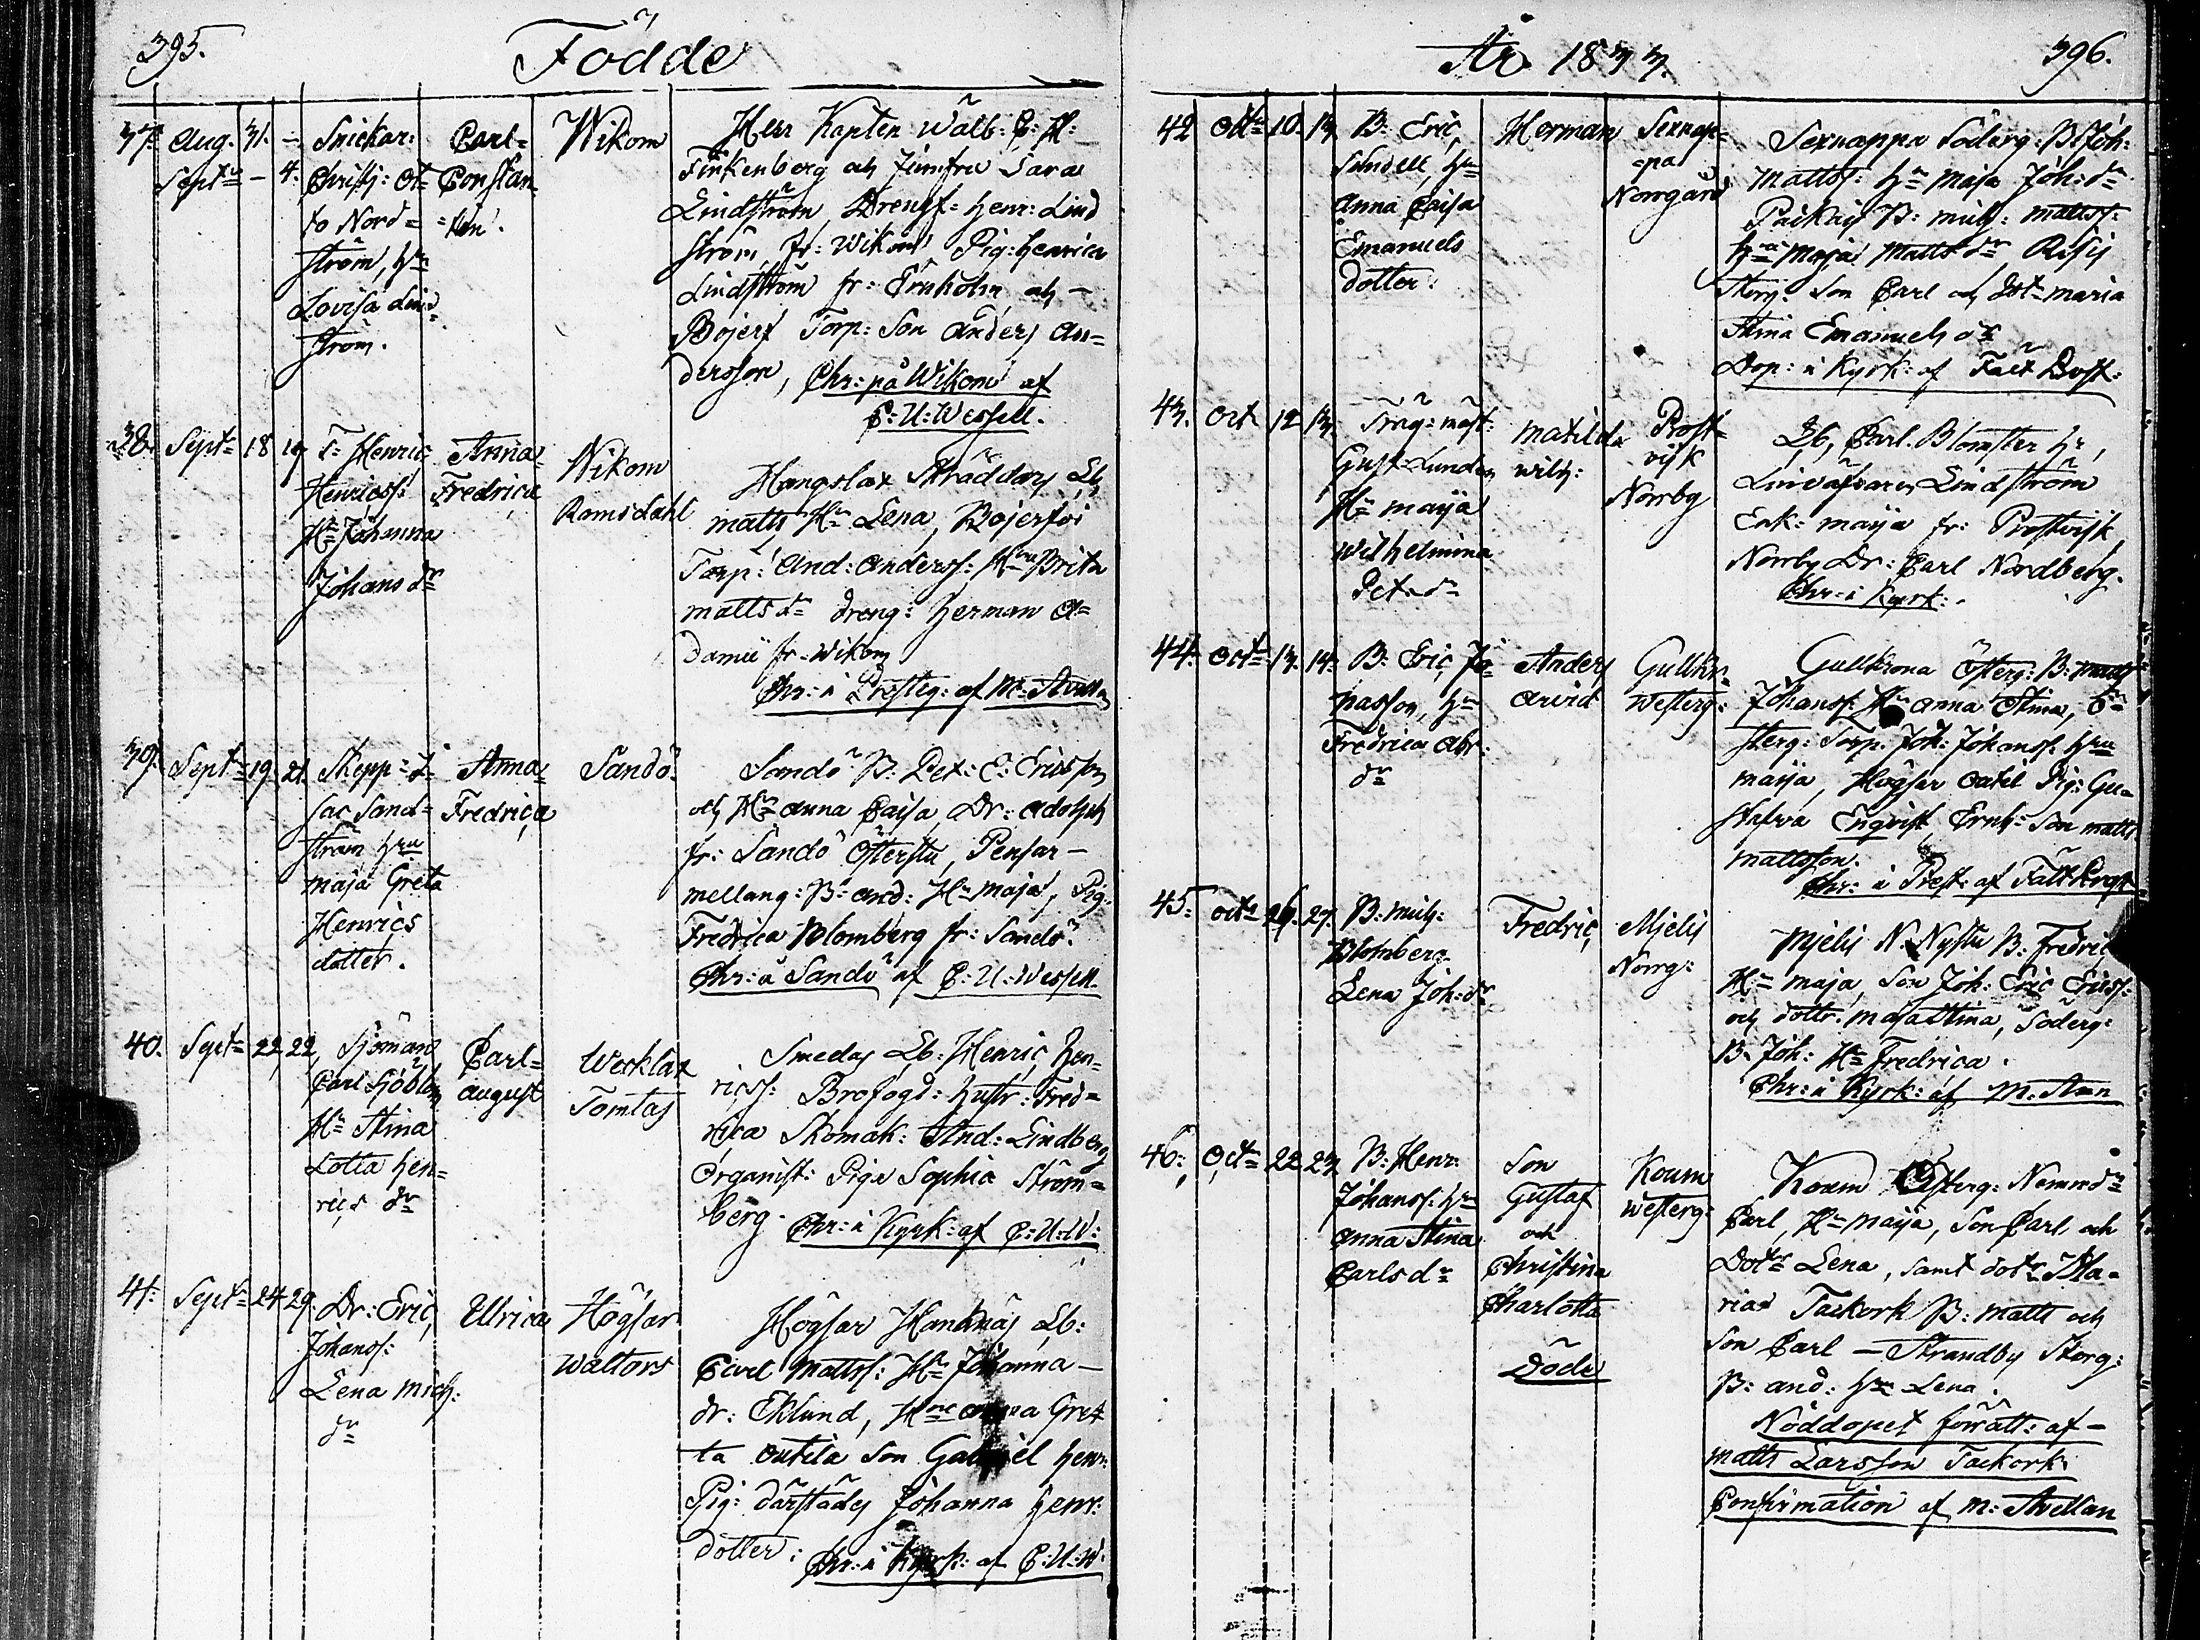 395.
Födde
37. Aug. 31. —
Sept:r — 4.
Snickar:
Christ: Ot=
to Nord=
ström, h:n
Lovisa Lind
ström.
Carl=
Constan
=tin.
Wikom
Herr Kapten Walb: C: H:
Finkenberg och Jumfru Sara
Lindström, Drengs: Henr: Lind
ström, fr: Wikom Pig: Henrica
Lindström fr: Ernholm och —
Bojers Torp: Son Anders An=
dersson, Chr: på Wikom af
C: U: Wessell.
38. Sept:r 18 19
T: Henric
Henricss:
H:u Johanna
Johans d:r
Anna=
Fredrica
Wikom
Ramsdahl
Mangslax Skräddars Lb,
Matts H:u Lena, Bojersjöi
Torp: And: Anderss: H:ru Brita
Matts d:r Dreng: Herman A=
damii fr: Wikom
Chr: i Presteg: af M: Avellan
39. Sept:r 19. 21.
Skepp: I=
sac Sand=
ström h:ru
Maja Greta
Henrics
dotter.
Anna=
Fredrica
Sandö.
Sandö B: Pet: E: Ericsson
och H:u Anna Caisa, Dr: Adolph
fr: Sandö Österstu, Pensar —
mellang: B: And: H:u Maja, Pig:
Fredrica Blomberg fr: Sandö.
Chr: å Sandö af C: U: Wessell.
40. Sept:r 22, 22,
Sjöman
Carl Sjöblom
H:u Stina
Lotta Hen=
rics d:r
Carl=
August
Werklax
Tomtas
Smedas Lb: Henric Hen=
ricss: Brofogd: Hustr: Fred=
rica Skomak: And: Lindberg
Organist: Piga Sophia Ström=
berg. Chr: i Kyrk: af C: U: W:
41. Sept:r 24 29.
Dr: Eric
Johanss:
Lena Mich:
d:r
Ulrica
Högsar
Waltars
Högsar Hanknäs Lb:
Carl Mattss: H:u Johanna —
dr: Eklund, H:ru Anna Gret
ta Outila Son Gabriel Henr:
Pig: därstädes Johanna Henr:
dotter: Chr: i Kyrk: af C: U: W:
År 1833.
396.
42 Oct:r 10. 13.
B: Eric
Sundell, h:u
Anna Caisa
Emanuels
dotter.
Herman
Sexnap=
=pa
Norrgård
Sexnappa Söderg: B: Joh:
Mattss: h:u Maja Joh: d:r
Mich: Mattss:
h:ru Maja Matts d:r,
Storg: Son Carl och Dot:r Maria
Stina Emanuels d:r
Dop: i Kyrk: af
43. Oct 12 13.
Träg: mäst:
Gust: Lunden
H:u Maija
Wilhelmina
Pet. d:r
Matilda
Wilh:
Prost=
vik
Norrby
Lb, Carl. Blomster h:,
Lindström
Enk: Maija fr: Prostvik
Norrby Dr: Carl Nordberg.
Chr: i Kyrk:
44. Oct:r 13. 14.
B: Eric Jo=
nasson, h:u
Fredrica Abr:
d:r
Anders
Arvid
Gullkr.
Westerg:
Gullkrona Österg: B: Matts
Johanss: H:u Anna Stina, Ö=
sterg: Torp: Joh: Johanss: h:ru
Maija, Högsar Oatil Pig: Gu=
stafva Enqvist Ernh: Son Matts
Mattsson.
Chr: i Prest: af
45. Oct:r 26. 27.
B: Mich:
Blomberg
Lena Joh: d:r
Fredric,
Mjelis
Norrg:
Mjelis N. Nystu B: Fredric
H:u Maja, Son Joh: Eric Ericss:
och dottr. Maja Stina, Söderg:
B. Joh: H:u Fredrica.
Chr: i Kyrk: af M. Aven
46. Oct:r 22 23
B: Henr:
Johanss: h:ru
Anna Stina
Carls d:r
Son
Gustaf
och
Christina
Charlotta
Döde
Koum
Westerg:
Koum Österg: Nämnd:n
Carl, H:u Maija, Son Carl och
Dot:r Lena, samt dot:r Ma=
ria Tackork B: Matts och
Son Carl — Strandby Storg:
B: And: h:ru Lena.
Nöddopet förrätt: af —
Matts Larsson Tackork
Confirmation af M: Avellan